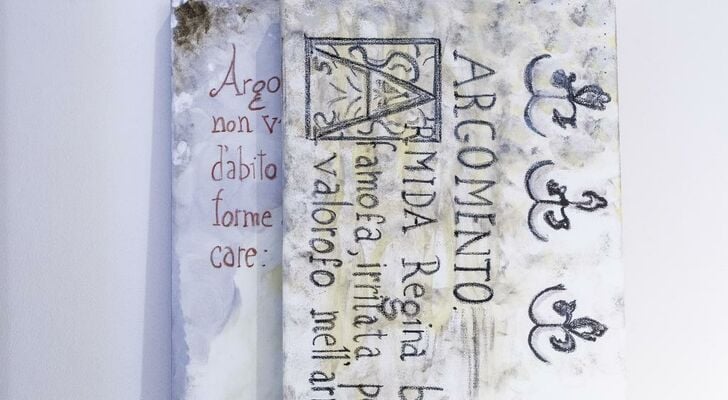 Argo
non v
d'abito
forme
care:
ARGOMENTO.
ARMIDA Regina b
famofa, irritata p
valorofo mell'ar